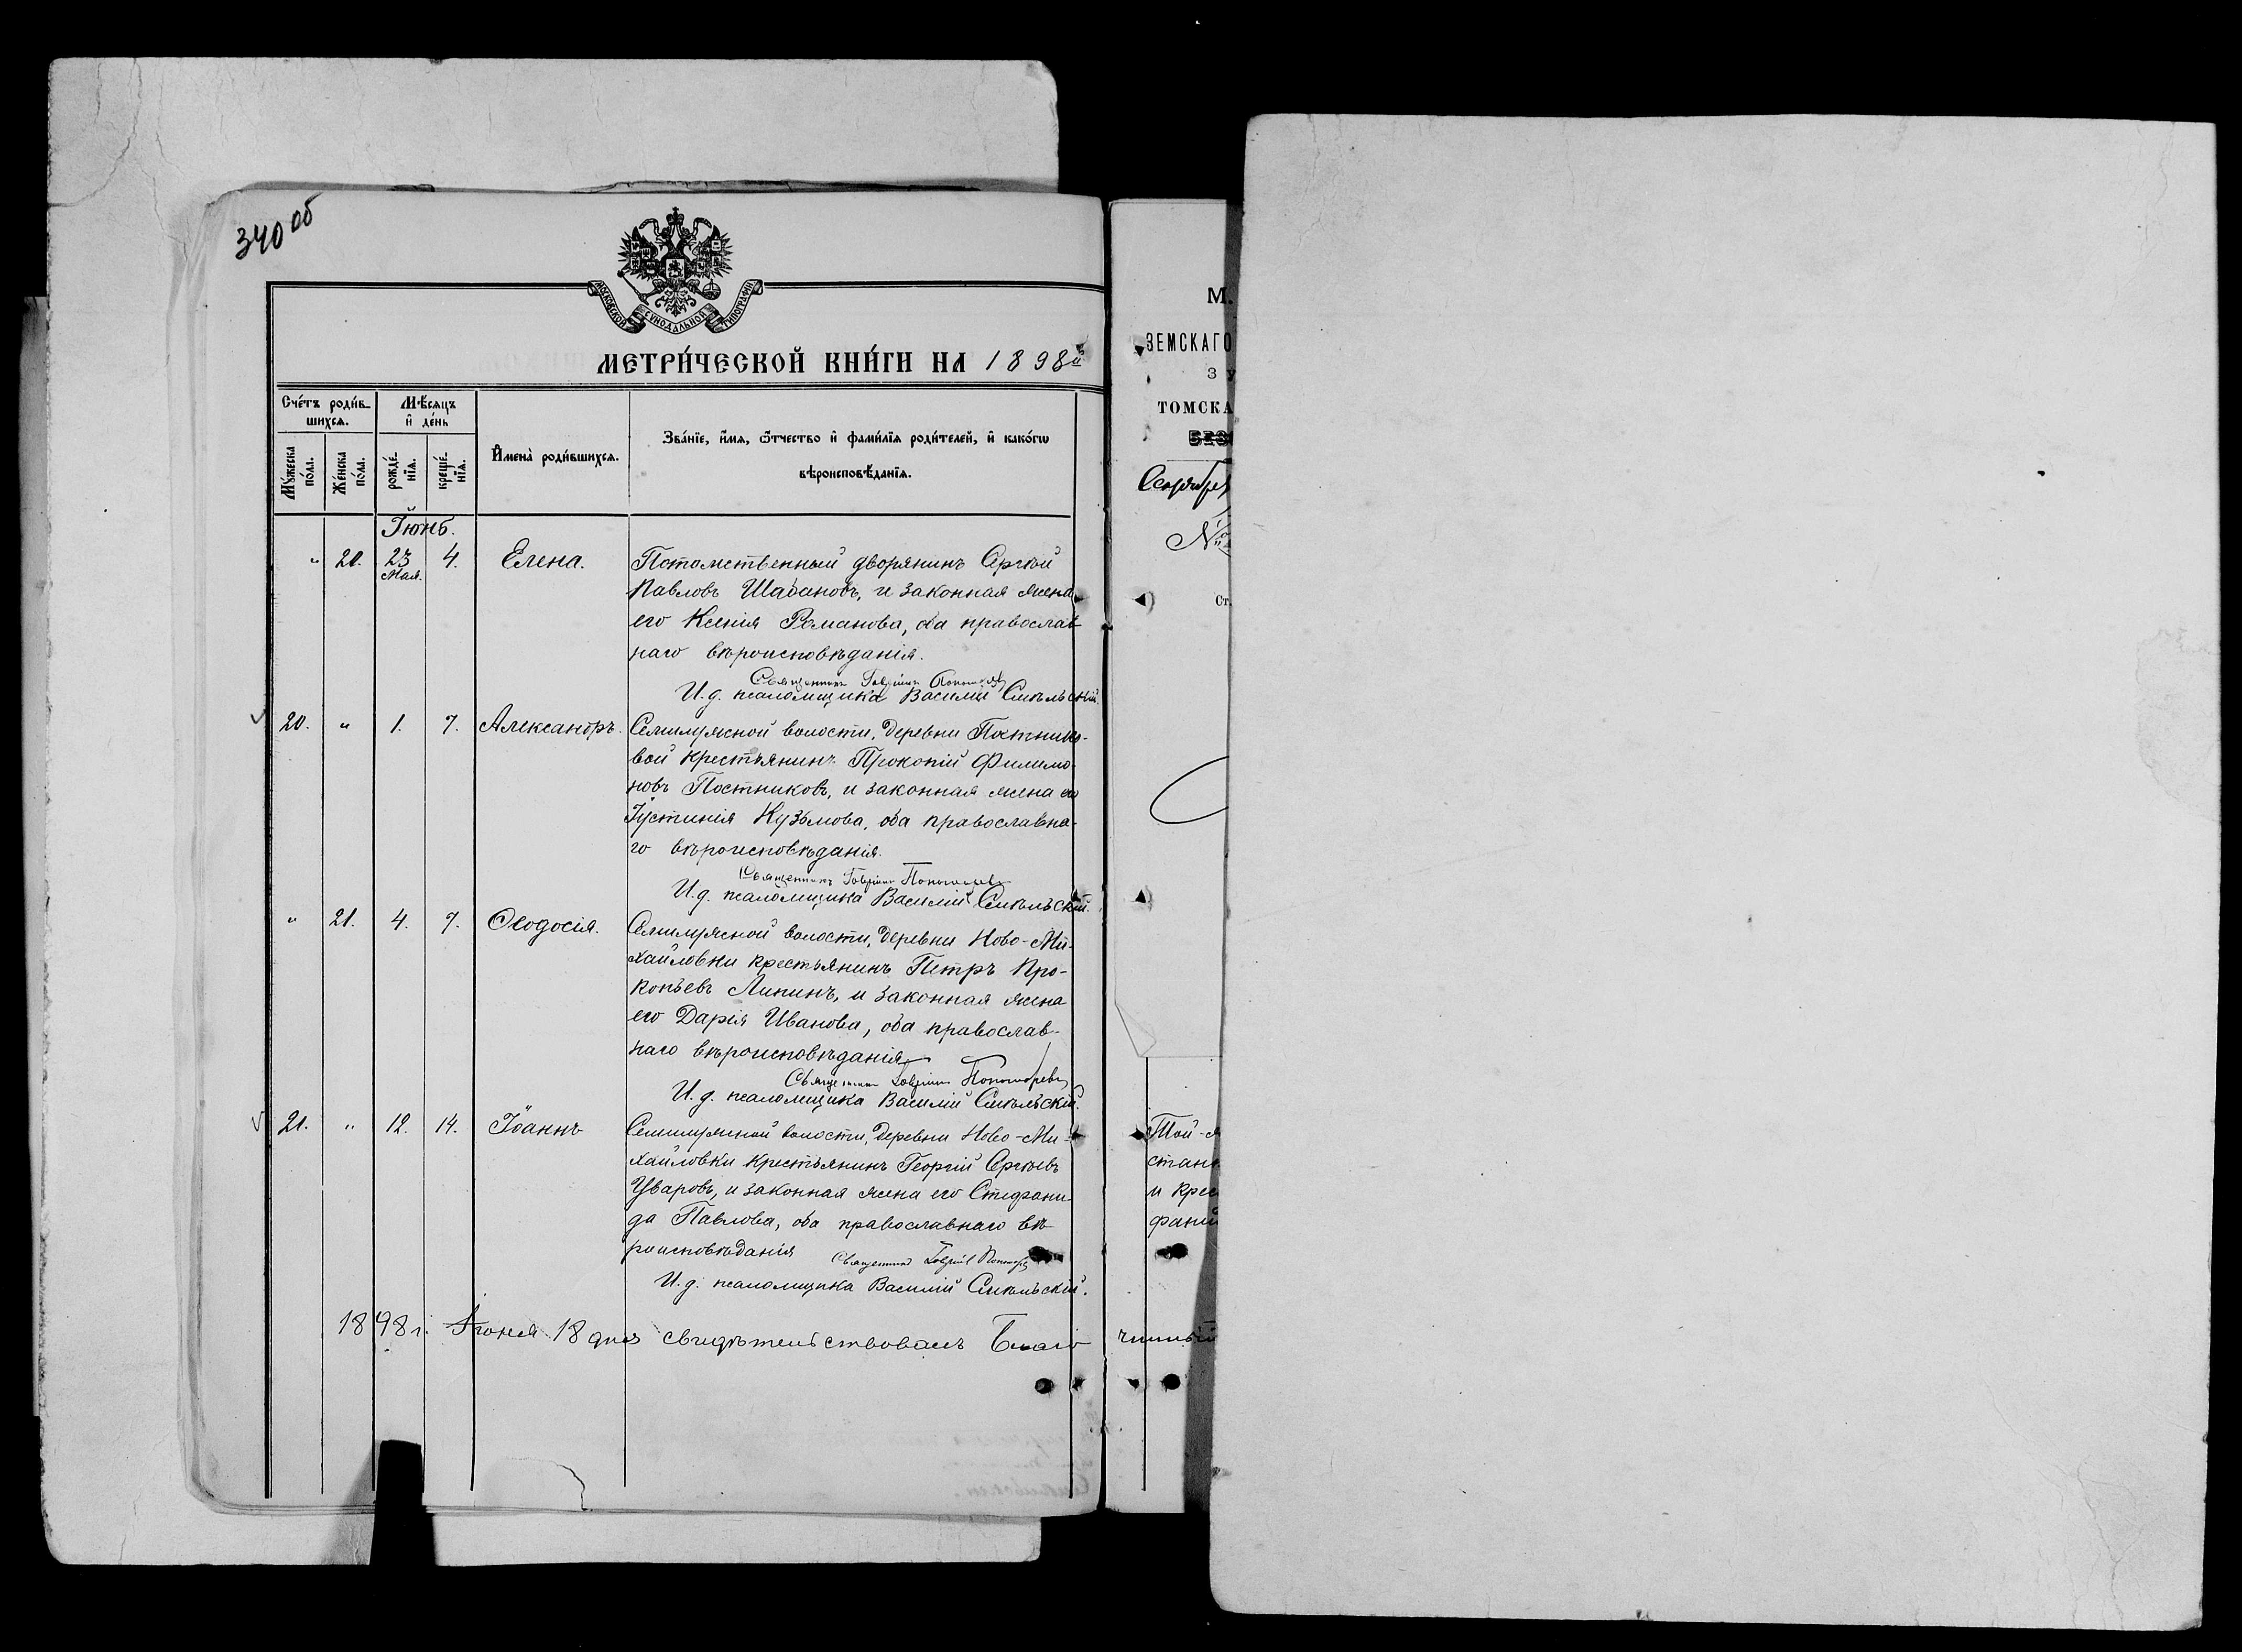 340 об
МОСКОВСКОЙ СѴНОДАЛЬНОЙ ТИПОГРАФІИ
МЕТРИ́ЧЕСКОЙ КНИ́ГИ НА 1898й
Сче́тъ роди́вшихсѧ.
Мѣ́сѧцъ и҆ де́нь
И҆мена̀ роди́вшихсѧ.
Зва́нїе, и҆́мѧ, ѻ҆́тчество и҆ фами́лїѧ роди́телей, и҆ како́гѡ
вѣроисповѣ́данїѧ.
Мꙋ́жеска по́ла.
Же́нска по́ла.
рожде́нїѧ.
креще́нїѧ.
Іюнь.
" 20. 23 Мая. 4. Елена. Потомственный дворянинъ Сергѣй
Павловъ Шабановъ, и законная жена
его Ксенія Романова, оба православ
наго вѣроисповѣданія.
Священникъ Гавріилъ Пономаревъ
И.д. псаломщика Василій Смѣльскій.
20. " 1. 7. Александръ. Семилужной волости, деревни Постнико-
вой крестьянинъ Прокопій Филимо-
новъ Постниковъ, и законная жена его
Іустинія Кузьмова, оба православна-
го вѣроисповѣданія.
Священникъ Гавріилъ Пономаревъ
И.д. псаломщика Василій Смѣльскій.
" 21. 4. 7. Ѳеодосія. Семилужной волости, деревни Ново-Ми-
хайловки крестьянинъ Петръ Про-
копьевъ Липинъ, и законная жена
его Дарія Иванова, оба православ-
наго вѣроисповѣданія
Священникъ Гавріилъ Пономаревъ
И.д. псаломщика Василій Смѣльскій.
21. " 12. 14. Іоаннъ Семилужной волости, деревни Ново-Ми-
хайловки крестьянинъ Георгій Сергѣевъ
Уваровъ, и законная жена его Стефани-
да Павлова, оба православнаго вѣ-
роисповѣданія
Священникъ Гавріилъ Пономаревъ
И.д. псаломщика Василій Смѣльскій.
1898 г. Іюня 18 дня свидѣтельствовалъ Благо
чинный
М.
ЗЕМСКАГО
З У
ТОМСКА
№
Ст.
Той-
стан
и крес
фани